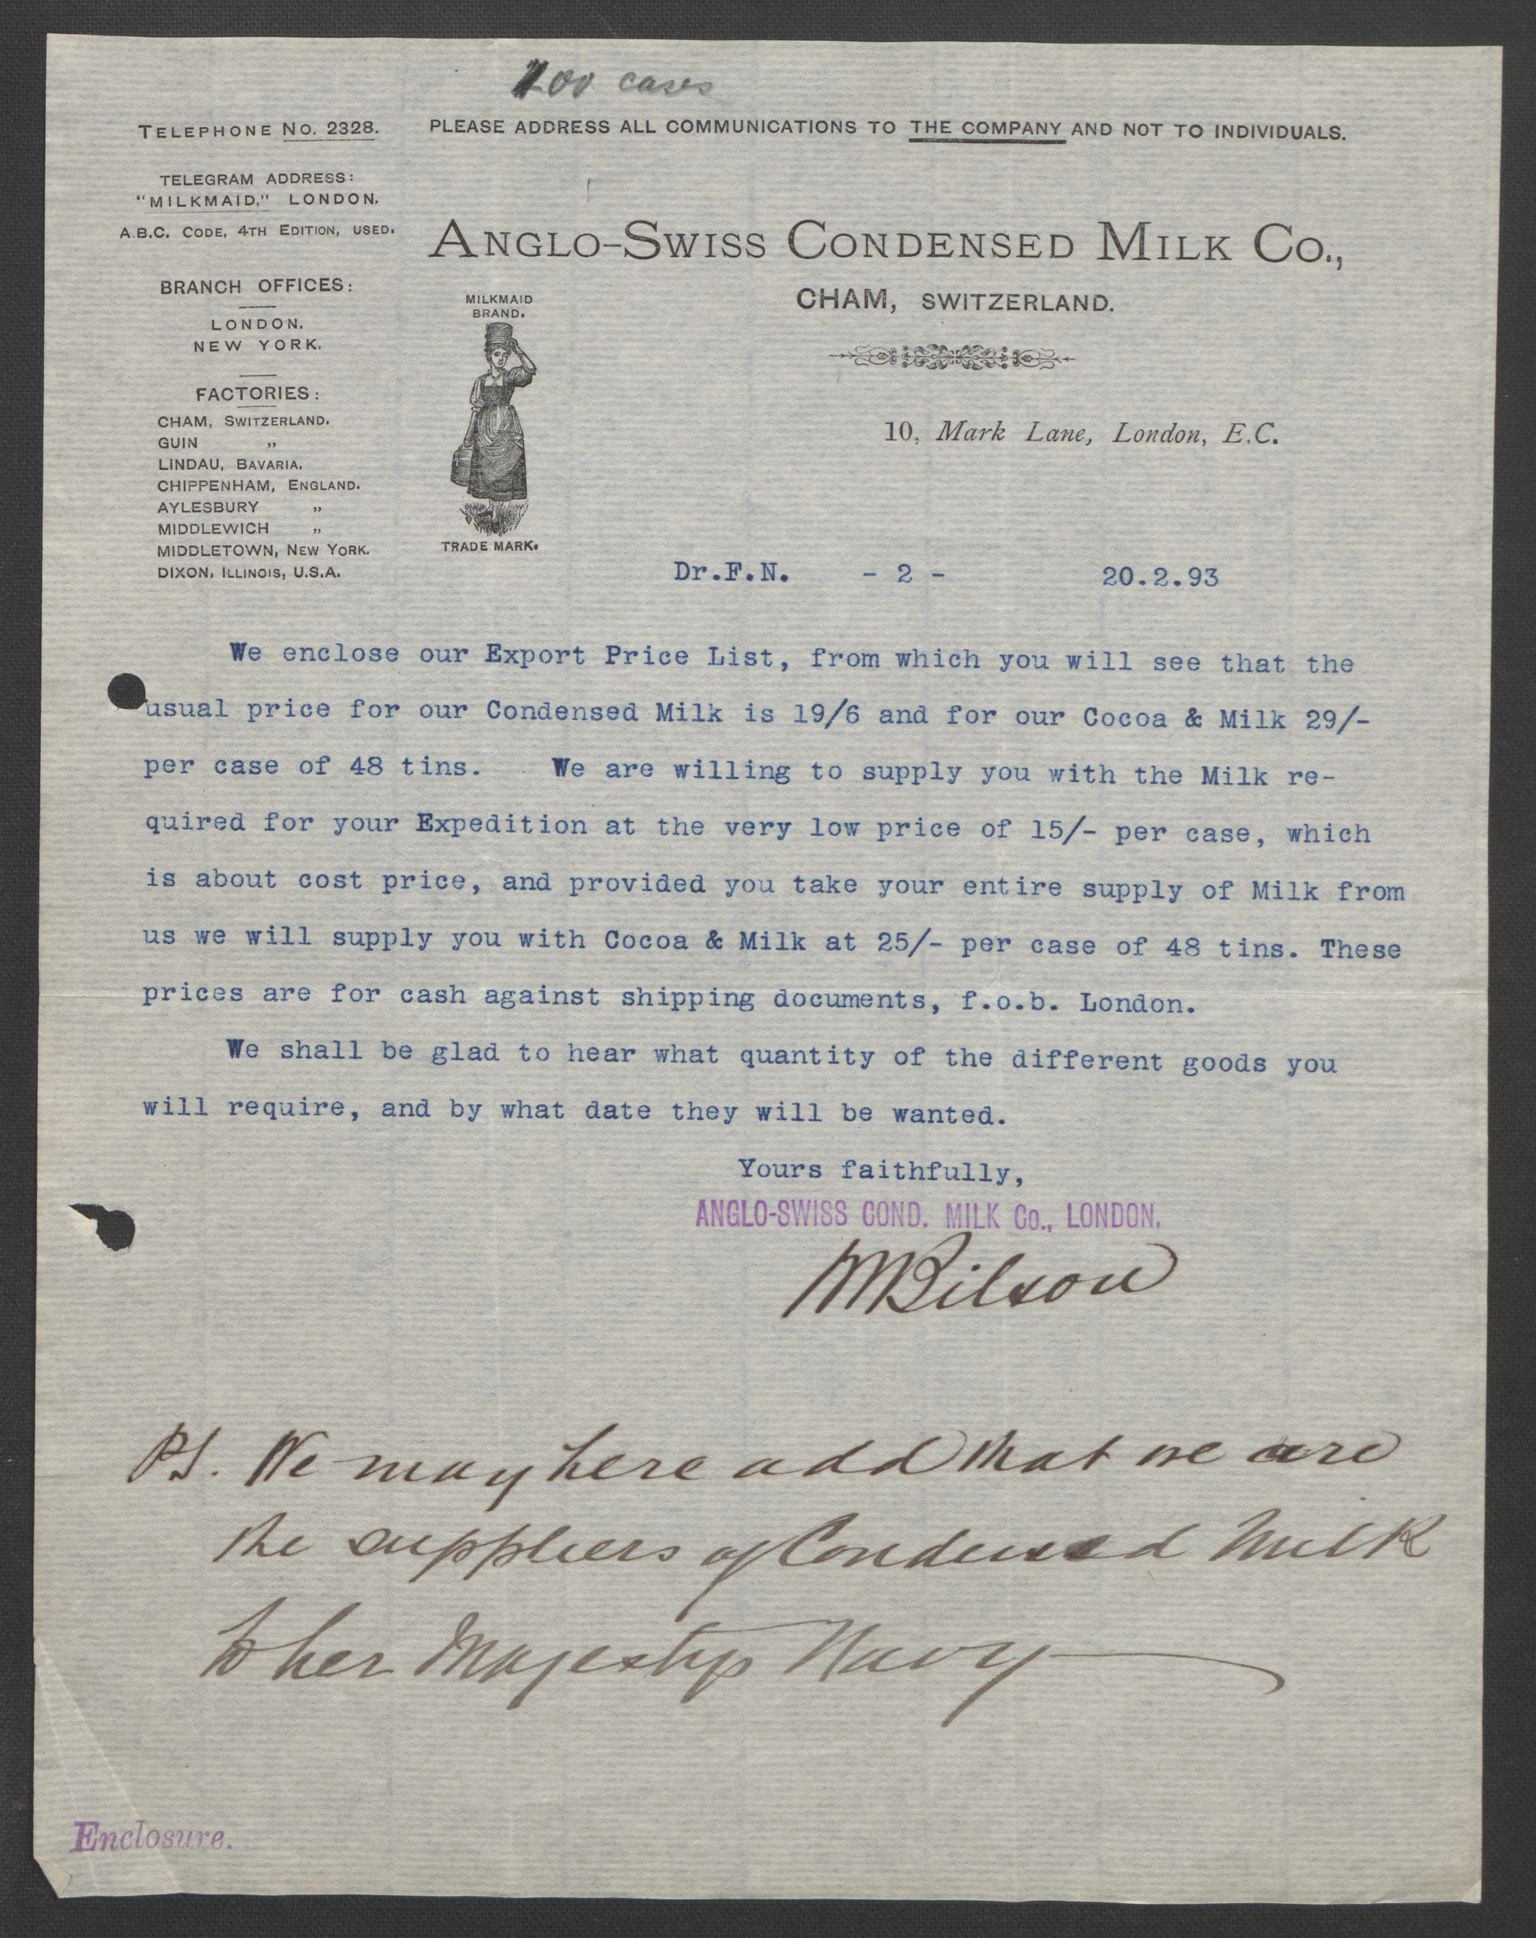 200 cases
TELEPHONE No. 2328.
PLEASE ADDRESS ALL COMMUNICATIONS TO THE COMPANY AND NOT TO INDIVIDUALS.
TELEGRAM ADDRESS:
"MILKMAID," LONDON.
A.B.C. CODE, 4TH EDITION, USED.
ANGLO-SWISS CONDENSED MILK CO.,
CHAM, SWITZERLAND.
BRANCH OFFICES:
LONDON.
NEW YORK.
FACTORIES:
CHAM, SWITZERLAND.
GUIN "
LINDAU, BAVARIA.
CHIPPENHAM, ENGLAND.
AYLESBURY "
MIDDLEWICH "
MIDDLETOWN, NEW YORK.
DIXON, ILLINOIS, U.S.A.
MILKMAID
BRAND.
TRADE MARK.
10, Mark Lane, London, E.C.
Dr.F.N. - 2 - 20.2.93
We enclose our Export Price List, from which you will see that the
usual price for our Condensed Milk is 19/6 and for our Cocoa & Milk 29/-
per case of 48 tins. We are willing to supply you with the Milk re-
quired for your Expedition at the very low price of 15/- per case, which
is about cost price, and provided you take your entire supply of Milk from
us we will supply you with Cocoa & Milk at 25/- per case of 48 tins. These
prices are for cash against shipping documents, f.o.b. London.
We shall be glad to hear what quantity of the different goods you
will require, and by what date they will be wanted.
Yours faithfully,
ANGLO-SWISS COND. MILK Co., LONDON.
WBilson
PS. We may here add that we are
the suppliers of Condensed Milk
to her Majestys Navy
Enclosure.